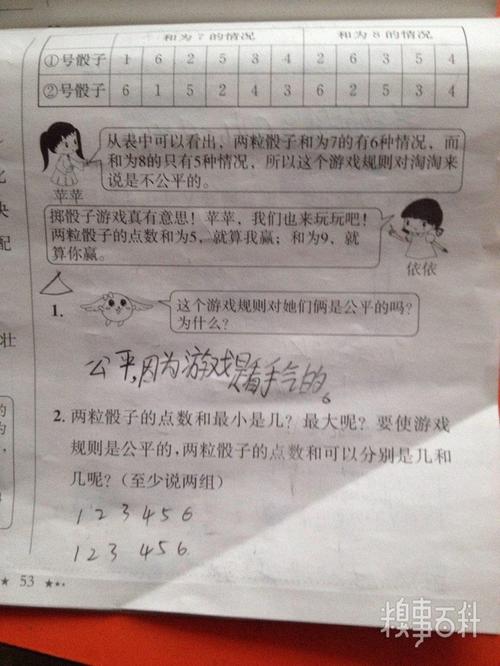 和为7的情况 和为8的情况
①号骰子 1 6 2 5 3 4 2 6 3 5 4
②号骰子 6 1 5 2 4 3 6 2 5 3 4
从表中可以看出，两粒骰子和为7的有6种情况，而
和为8的只有5种情况，所以这个游戏规则对淘淘来
说是不公平的。
苹苹
掷骰子游戏真有意思！苹苹，我们也来玩玩吧！
两粒骰子的点数和为5，就算我赢；和为9，就
算你赢。
依依
1.
这个游戏规则对她们俩是公平的吗？
为什么？
公平，因为游戏是看手气的。
2. 两粒骰子的点数和最小是几？最大呢？要使游戏
规则是公平的，两粒骰子的点数和可以分别是几和
几呢？（至少说两组）
1 2 3 4 5 6
1 2 3 4 5 6
53
糗事百科